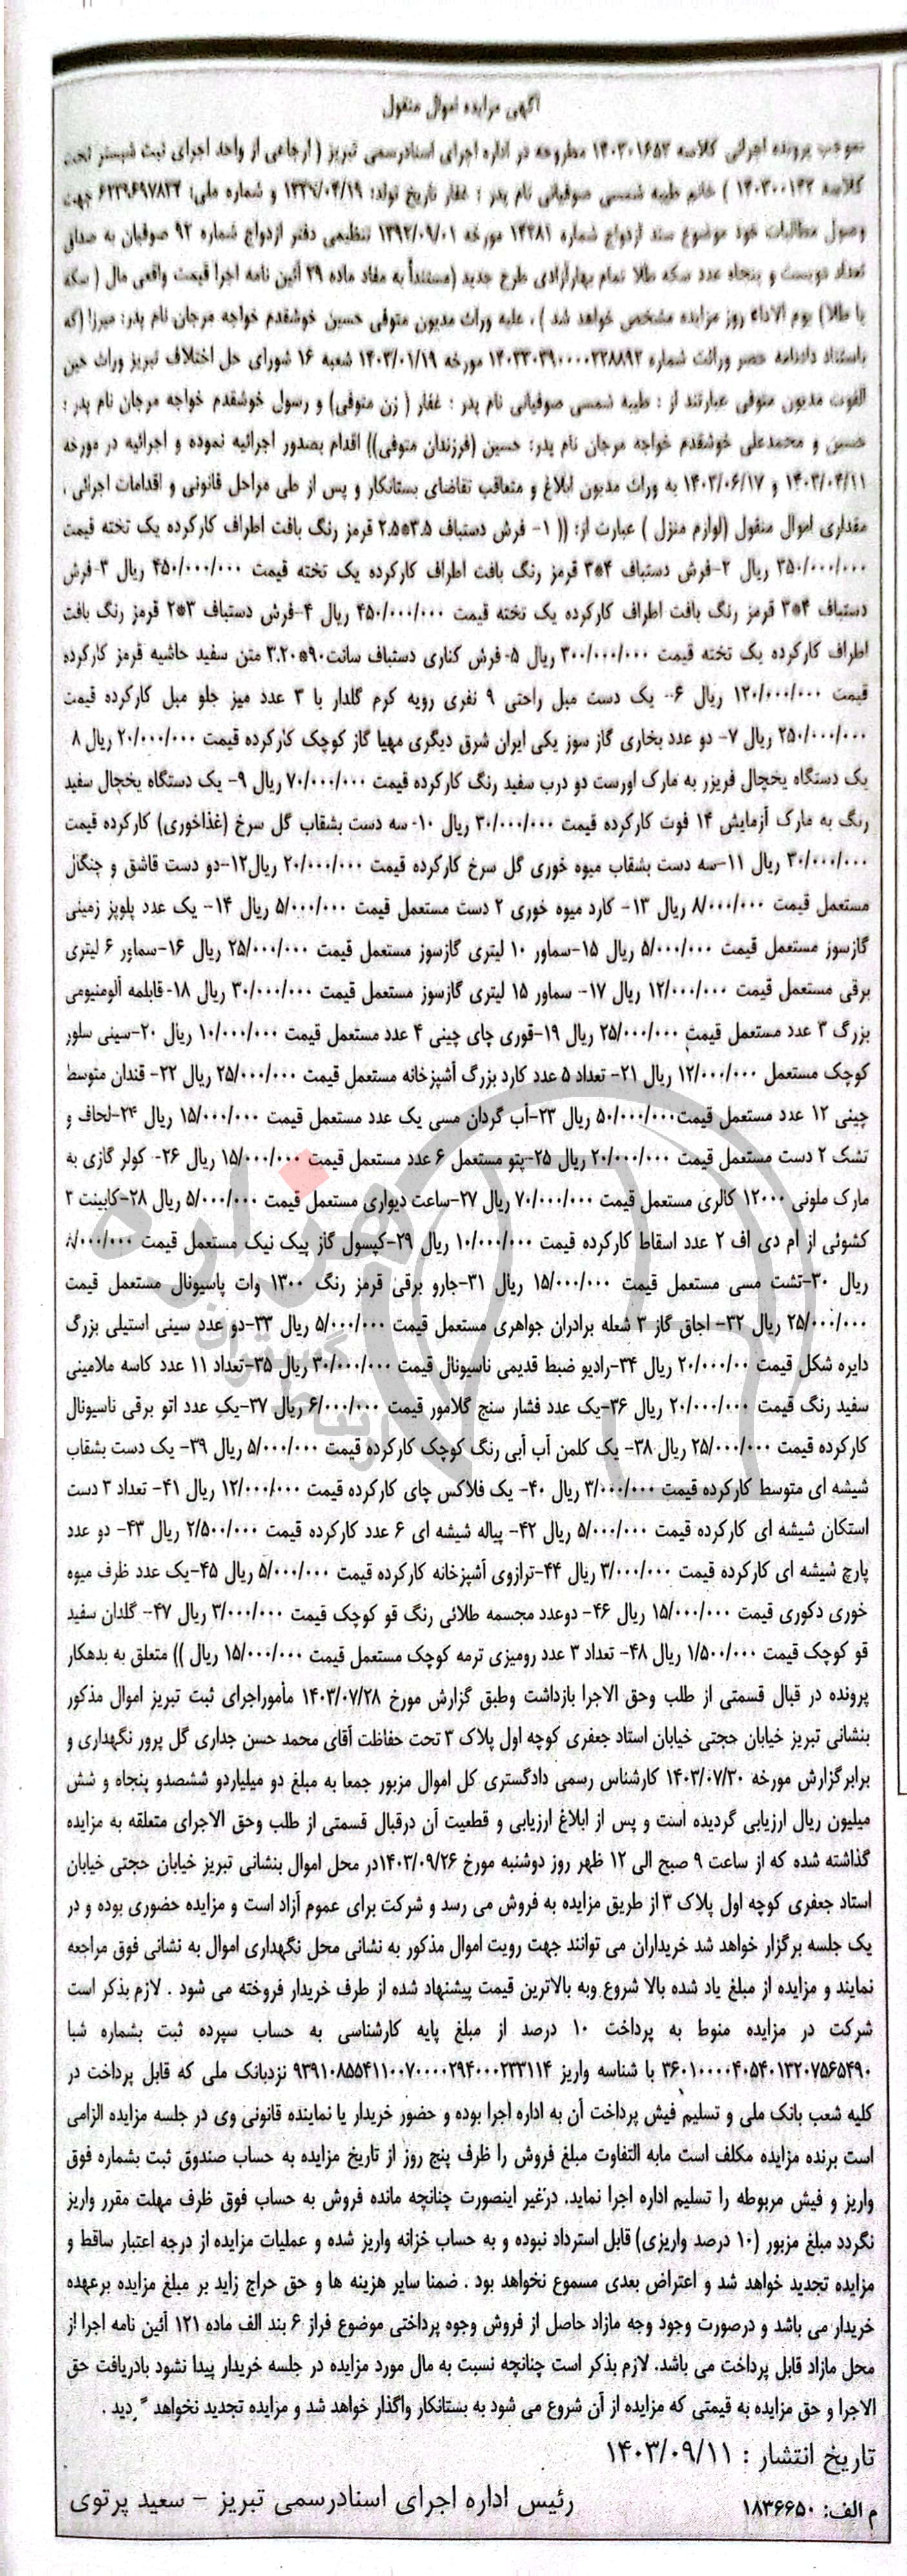 آگهی مزایده اموال منقول
بموجب پرونده اجرائی کلاسه ۱۴۰۳۰۱۶۵۳ مطروحه در اداره اجرای اسنادرسمی تبریز ( ارجاعی از واحد اجرای ثبت شبستر تحت
کلاسه ۱۴۰۳۰۰۱۴۳ ) خانم طیبه شمسی صوفیانی نام پدر : غفار تاریخ تولد: ۱۳۳۹/۰۴/۱۹ و شماره ملی: جهت
وصول مطالبات خود موضوع سند ازدواج شماره ۱۴۲۸۱ مورخه ۱۳۹۲/۰۹/۰۱ تنظیمی دفتر ازدواج شماره ۹۲ صوفیان به صداق
تعداد دویست و پنجاه عدد سکه طلا تمام بهارآزادی طرح جدید (مستنداً به مفاد ماده ۲۹ آئین نامه اجرا قیمت واقعی مال ( سکه
یا طلا) یوم الاداء روز مزایده مشخص خواهد شد ) ، علیه وراث مدیون متوفی حسین خوشقدم خواجه مرجان نام پدر: میرزا (که
باستناد دادنامه حصر وراثت شماره ۱۴۰۳۳۰۳۹۰۰۰۰۲۲۸۸۹۲ مورخه ۱۴۰۳/۰۱/۱۹ شعبه ۱۶ شورای حل اختلاف تبریز وراث حین
الفوت مدیون متوفی عبارتند از : طیبه شمسی صوفیانی نام پدر : غفار ( زن متوفی) و رسول خوشقدم خواجه مرجان نام پدر :
حسین و محمدعلی خوشقدم خواجه مرجان نام پدر: حسین (فرزندان متوفی)) اقدام بصدور اجرائیه نموده و اجرائیه در مورخه
۱۴۰۳/۰۴/۱۱ و ۱۴۰۳/۰۶/۱۷ به وراث مدیون ابلاغ و متعاقب تقاضای بستانکار و پس از طی مراحل قانونی و اقدامات اجرائی ،
مقداری اموال منقول (لوازم منزل ) عبارت از: (( ۱- فرش دستباف ۳.۵*۲.۵ قرمز رنگ بافت اطراف کارکرده یک تخته قیمت
۳۵۰/۰۰۰/۰۰۰ ریال ۲-فرش دستباف ۴*۳ قرمز رنگ بافت اطراف کارکرده یک تخته قیمت ۴۵۰/۰۰۰/۰۰۰ ریال ۳-فرش
دستباف ۴*۳ قرمز رنگ بافت اطراف کارکرده یک تخته قیمت ۴۵۰/۰۰۰/۰۰۰ ریال ۴-فرش دستباف ۳*۲ قرمز رنگ بافت
اطراف کارکرده یک تخته قیمت ۳۰۰/۰۰۰/۰۰۰ ریال ۵- فرش کناری دستباف سانت۹۰*۳.۲۰ متن سفید حاشیه قرمز کارکرده
قیمت ۱۲۰/۰۰۰/۰۰۰ ریال ۶- یک دست مبل راحتی ۹ نفری رویه کرم گلدار با ۳ عدد میز جلو مبل کارکرده قیمت
۲۵۰/۰۰۰/۰۰۰ ریال ۷- دو عدد بخاری گاز سوز یکی ایران شرق دیگری مهیا گاز کوچک کارکرده قیمت ۲۰/۰۰۰/۰۰۰ ریال ۸
یک دستگاه یخچال فریزر به مارک اورست دو درب سفید رنگ کارکرده قیمت ۷۰/۰۰۰/۰۰۰ ریال ۹- یک دستگاه یخچال سفید
رنگ به مارک آزمایش ۱۴ فوت کارکرده قیمت ۳۰/۰۰۰/۰۰۰ ریال ۱۰- سه دست بشقاب گل سرخ (غذاخوری) کارکرده قیمت
۳۰/۰۰۰/۰۰۰ ریال ۱۱-سه دست بشقاب میوه خوری گل سرخ کارکرده قیمت ۲۰/۰۰۰/۰۰۰ ریال۱۲-دو دست قاشق و چنگال
مستعمل قیمت ۸/۰۰۰/۰۰۰ ریال ۱۳- کارد میوه خوری ۲ دست مستعمل قیمت ۵/۰۰۰/۰۰۰ ریال ۱۴- یک عدد پلوپز زمینی
گازسوز مستعمل قیمت ۵/۰۰۰/۰۰۰ ریال ۱۵-سماور ۱۰ لیتری گازسوز مستعمل قیمت ۲۵/۰۰۰/۰۰۰ ریال ۱۶-سماور ۶ لیتری
برقی مستعمل قیمت ۱۲/۰۰۰/۰۰۰ ریال ۱۷- سماور ۱۵ لیتری گازسوز مستعمل قیمت ۳۰/۰۰۰/۰۰۰ ریال ۱۸-قابلمه آلومنیومی
بزرگ ۳ عدد مستعمل قیمت ۲۵/۰۰۰/۰۰۰ ریال ۱۹-قوری چای چینی ۴ عدد مستعمل قیمت ۱۰/۰۰۰/۰۰۰ ریال ۲۰-سینی سلور
کوچک مستعمل ۱۲/۰۰۰/۰۰۰ ریال ۲۱- تعداد ۵ عدد کارد بزرگ آشپزخانه مستعمل قیمت ۲۵/۰۰۰/۰۰۰ ریال ۲۲- قندان متوسط
چینی ۱۲ عدد مستعمل قیمت۵۰/۰۰۰/۰۰۰ ریال ۲۳-آب گردان مسی یک عدد مستعمل قیمت ۱۵/۰۰۰/۰۰۰ ریال ۲۴-لحاف و
تشک ۲ دست مستعمل قیمت ۲۰/۰۰۰/۰۰۰ ریال ۲۵-پتو مستعمل ۶ عدد مستعمل قیمت ۱۵/۰۰۰/۰۰۰ ریال ۲۶- کولر گازی به
مارک ملونی ۱۲۰۰۰ کالری مستعمل قیمت ۷۰/۰۰۰/۰۰۰ ریال ۲۷-ساعت دیواری مستعمل قیمت ۵/۰۰۰/۰۰۰ ریال ۲۸-کابینت ۳
کشوئی از ام دی اف ۲ عدد اسقاط کارکرده قیمت ۱۰/۰۰۰/۰۰۰ ریال ۲۹-کپسول گاز پیک نیک مستعمل قیمت ۸/۰۰۰/۰۰۰
ریال ۳۰-تشت مسی مستعمل قیمت ۱۵/۰۰۰/۰۰۰ ریال ۳۱-جارو برقی قرمز رنگ ۱۳۰۰ وات پاسیونال مستعمل قیمت
۲۵/۰۰۰/۰۰۰ ریال ۳۲- اجاق گاز ۳ شعله برادران جواهری مستعمل قیمت ۵/۰۰۰/۰۰۰ ریال ۳۳-دو عدد سینی استیلی بزرگ
دایره شکل قیمت ۲۰/۰۰۰/۰۰ ریال ۳۴-رادیو ضبط قدیمی ناسیونال قیمت ۳۰/۰۰۰/۰۰۰ ریال ۳۵-تعداد ۱۱ عدد کاسه ملامینی
سفید رنگ قیمت ۲۰/۰۰۰/۰۰۰ ریال ۳۶-یک عدد فشار سنج گلامور قیمت ۶/۰۰۰/۰۰۰ ریال ۳۷-یک عدد اتو برقی ناسیونال
کارکرده قیمت ۲۵/۰۰۰/۰۰۰ ریال ۳۸- یک کلمن آب آبی رنگ کوچک کارکرده قیمت ۵/۰۰۰/۰۰۰ ریال ۳۹- یک دست بشقاب
شیشه ای متوسط کارکرده قیمت ۳/۰۰۰/۰۰۰ ریال ۴۰- یک فلاکس چای کارکرده قیمت ۱۲/۰۰۰/۰۰۰ ریال ۴۱- تعداد ۳ دست
استکان شیشه ای کارکرده قیمت ۵/۰۰۰/۰۰۰ ریال ۴۲- پیاله شیشه ای ۶ عدد کارکرده قیمت ۲/۵۰۰/۰۰۰ ریال ۴۳- دو عدد
پارچ شیشه ای کارکرده قیمت ۳/۰۰۰/۰۰۰ ریال ۴۴-ترازوی آشپزخانه کارکرده قیمت ۵/۰۰۰/۰۰۰ ریال ۴۵-یک عدد ظرف میوه
خوری دکوری قیمت ۱۵/۰۰۰/۰۰۰ ریال ۴۶- دوعدد مجسمه طلائی رنگ قو کوچک قیمت ۳/۰۰۰/۰۰۰ ریال ۴۷- گلدان سفید
قو کوچک قیمت ۱/۵۰۰/۰۰۰ ریال ۴۸- تعداد ۳ عدد رومیزی ترمه کوچک مستعمل قیمت ۱۵/۰۰۰/۰۰۰ ریال )) متعلق به بدهکار
پرونده در قبال قسمتی از طلب وحق الاجرا بازداشت وطبق گزارش مورخ ۱۴۰۳/۰۷/۲۸ مأموراجرای ثبت تبریز اموال مذکور
بنشانی تبریز خیابان حجتی خیابان استاد جعفری کوچه اول پلاک ۳ تحت حفاظت آقای محمد حسن جداری گل پرور نگهداری و
برابرگزارش مورخه ۱۴۰۳/۰۷/۳۰ کارشناس رسمی دادگستری کل اموال مزبور جمعا به مبلغ دو میلیاردو ششصدو پنجاه و شش
میلیون ریال ارزیابی گردیده است و پس از ابلاغ ارزیابی و قطعیت آن درقبال قسمتی از طلب وحق الاجرای متعلقه به مزایده
گذاشته شده که از ساعت ۹ صبح الی ۱۲ ظهر روز دوشنبه مورخ ۱۴۰۳/۰۹/۲۶در محل اموال بنشانی تبریز خیابان حجتی خیابان
استاد جعفری کوچه اول پلاک ۳ از طریق مزایده به فروش می رسد و شرکت برای عموم آزاد است و مزایده حضوری بوده و در
یک جلسه برگزار خواهد شد خریداران می توانند جهت رویت اموال مذکور به نشانی محل نگهداری اموال به نشانی فوق مراجعه
نمایند و مزایده از مبلغ یاد شده بالا شروع وبه بالاترین قیمت پیشنهاد شده از طرف خریدار فروخته می شود . لازم بذکر است
شرکت در مزایده منوط به پرداخت ۱۰ درصد از مبلغ پایه کارشناسی به حساب سپرده ثبت بشماره شبا
۳۶۰۱۰۰۰۰۴۰۵۴۰۱۳۲۰۷۵۶۵۴۹۰ با شناسه واریز ۹۳۹۱۰۸۵۵۴۱۱۰۰۷۰۰۰۰۲۹۴۰۰۰۲۳۳۱۱۴ نزدبانک ملی که قابل پرداخت در
کلیه شعب بانک ملی و تسلیم فیش پرداخت آن به اداره اجرا بوده و حضور خریدار یا نماینده قانونی وی در جلسه مزایده الزامی
است برنده مزایده مکلف است مابه التفاوت مبلغ فروش را ظرف پنج روز از تاریخ مزایده به حساب صندوق ثبت بشماره فوق
واریز و فیش مربوطه را تسلیم اداره اجرا نماید. درغیر اینصورت چنانچه مانده فروش به حساب فوق ظرف مهلت مقرر واریز
نگردد مبلغ مزبور (۱۰ درصد واریزی) قابل استرداد نبوده و به حساب خزانه واریز شده و عملیات مزایده از درجه اعتبار ساقط و
مزایده تجدید خواهد شد و اعتراض بعدی مسموع نخواهد بود . ضمنا سایر هزینه ها و حق حراج زاید بر مبلغ مزایده برعهده
خریدار می باشد و درصورت وجود وجه مازاد حاصل از فروش وجوه پرداختی موضوع فراز ۶ بند الف ماده ۱۲۱ آئین نامه اجرا از
محل مازاد قابل پرداخت می باشد. لازم بذکر است چنانچه نسبت به مال مورد مزایده در جلسه خریدار پیدا نشود بادریافت حق
الاجرا و حق مزایده به قیمتی که مزایده از آن شروع می شود به بستانکار واگذار خواهد شد و مزایده تجدید نخواهد گردید .
تاریخ انتشار : ۱۴۰۳/۰۹/۱۱
م الف: ۱۸۳۶۶۵۰
رئیس اداره اجرای اسنادرسمی تبریز - سعید پرتوی